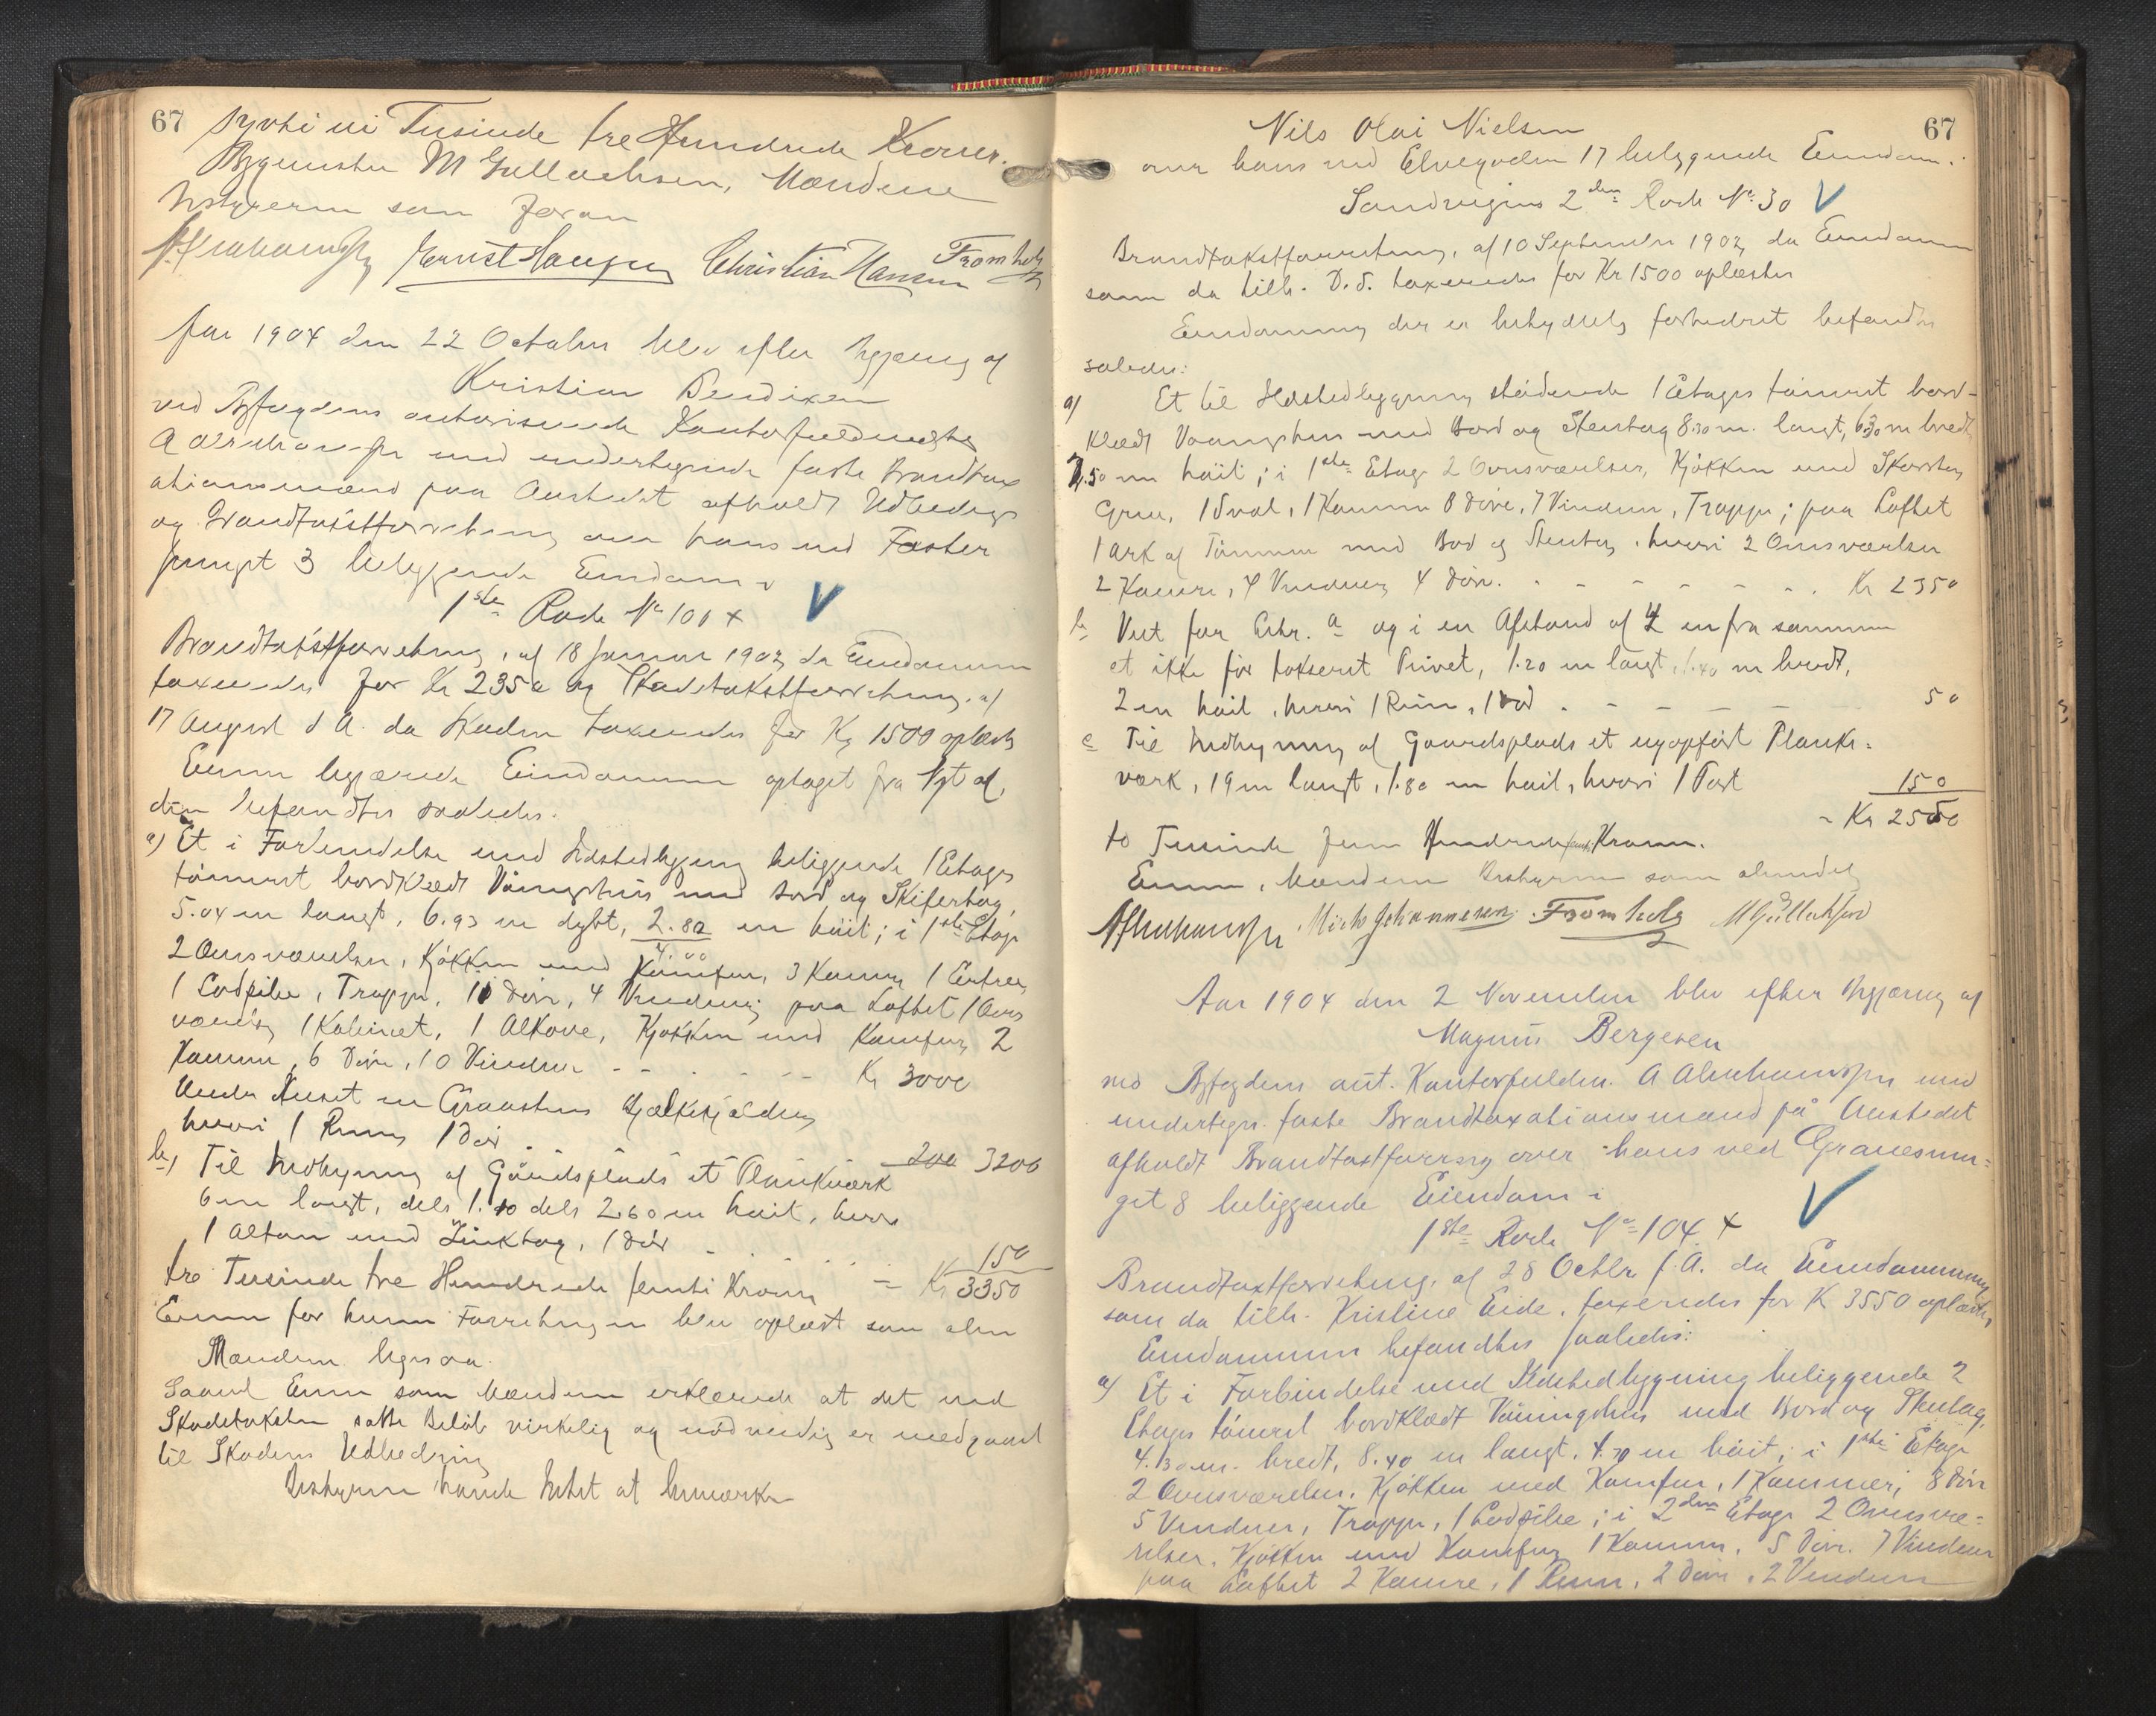 67
syvti ni Tusinde tre Hundrede Kroner.
Bygmester M Gullachsen, Mændene
bestyreren som foran
Ernst Christian Hansen Fromholz
Aar 1904 den 22 October blev efter Begjæring af
Kristian Bendixen
ved Byfogdens autoriserede Kontorfuldmægtig
A Abrahamsen med undertegnede faste Brandtax
ationsmænd paa Aastedet afholdt Udbedrings
og Brandtakstforretning over hans ved Foster
smuget 3 beliggende Eiendom i
1ste Rode No 101 x V
Brandtakstforretning, af 18 Januar 1902 da Eiendommen
taxeredes for Kr 2350 og Skadetakstforretning af
17 August d A. da Skaden taxeredes for Kr 1500 oplæst
Eieren begjærede Eiendommen optaget fra Nyt af,
den befandtes saaledes:
a) Et i Forbindelse med Ildstedbygning beliggende 1 Etages
tømret bordklædt Vaaningshus med Bord og Skifertag,
5.04 m langt, 6.93 m dybt, 2.80 / 4.00 m høit; i 1ste Etage
2 Ovnsværelser, Kjøkken med Komfur, 3 Kamre, 1 Entree,
1 Lodpibe, Trappe, 11 Døre, 4 Vinduer; paa Loftet 1 Ovns
værelse, 1 Kabinet, 1 Alkove, Kjøkken med Komfur, 2
Kamre, 6 Døre, 10 Vinduer - - - - - Kr 3000
Under Huset en Graastens Hjælkekjælder
hvori 1 Rum, 1 Dør - 200 3200
b) Til Indhegning af Gaardsplads et Plankværk
6 m langt, dels 1.10 dels 2.60 m høit, hvori
1 Altan med Zinktag, 1 Dør - - - 150
tre Tusinde tre Hundrede femti Kroner = Kr 3350
Eieren for hvem Forretningen blev oplæst som alm
Mændene ligesaa.
Saavel Eieren som Mændene erklærede at det ved
Skadetaksten satte Beløb virkelig og nødvendig er medgaaet
til Skadens Udbedring
Bestyreren havde Intet at bemærke
67
Nils Olai Nielsen
over hans ved Elvegaden 17 beliggende Eiendom i
Sandvigens 2den Rode No 30 V
Brandtakstforretning, af 10 September 1902, da Eiendommen
som da tilh. D.S. taxeredes for Kr 1500 oplæstes
Eiendommen der er betydelig forbedret befandtes
saaledes:
a) Et til Ildstedbygning stødende 1 Etages tømret bord-
klædt Vaaningshus med Bord og Stentag 8.30 m. langt, 6.30 m bredt
4.50 m høit; i 1ste Etage 2 Ovnsværelser, Kjøkken med Skorsten
Grue, 1 Sval, 1 Kammer 8 Døre, 7 Vinduer, Trappe; paa Loftet
1 Ark af Tømmer med Bord og Stentag, hvori 2 Ovnsværelser
2 Kamre, 4 Vinduer, 4 Døre. - - - - - - Kr 2350
b Vest for Litr. a og i en Afstand af 4 m fra samme
et ikke før takseret Privet, 1.20 m langt, 1.40 m bredt,
2 m høit, hvori 1 Rum, 1 Dør - - - - - 50
c Til Indhegning af Gaardsplads et nyopført Plank=
værk, 19 m langt, 1.80 m høit, hvori 1 Port 150
= Kr 2550
to Tusinde fem Hundrede femti Kroner.
Eieren, Mændene Bestyreren som almindelig
Mich Johannesen Fromholz M Gullachsen
Aar 1904 den 2 November blev efter Begjæring af
Magnus Bergesen
ved Byfogdens aut. Kontorfuldm. A Abrahamsen med
undertegn. faste Brandtaxationsmænd på Aastedet
afholdt Brandtaxtforretng over hans ved Granesmu=
get 8 beliggende Eiendom i
1ste Rode No 104. x V
Brandtaxtforretning, af 28 Octbr f. A. da Eiendommen
som da tilh. Kristine Eide, taxeredes for K 3550 oplæstes,
Eiendommen befandtes saaledes:
a) Et i Forbindelse med Ildstedbygning beliggende 2
Etages tømret bordklædt Vaaningshus med Bord og Stentag,
4.30 m. bredt, 8.40 m langt, 4.70 m høit; i 1ste Etage
2 Ovnsværelser, Kjøkken med Komfur, 1 Kammer, 8 Døre
5 Vinduer, Trappe, 1 Lodpibe; i 2den Etage 2 Ovnsvæ=
relser, Kjøkken med Komfur, 1 Kammer, 5 Døre, 7 Vinduer
paa Loftet 2 Kamre, 1 Rum, 2 Døre, 2 Vinduer